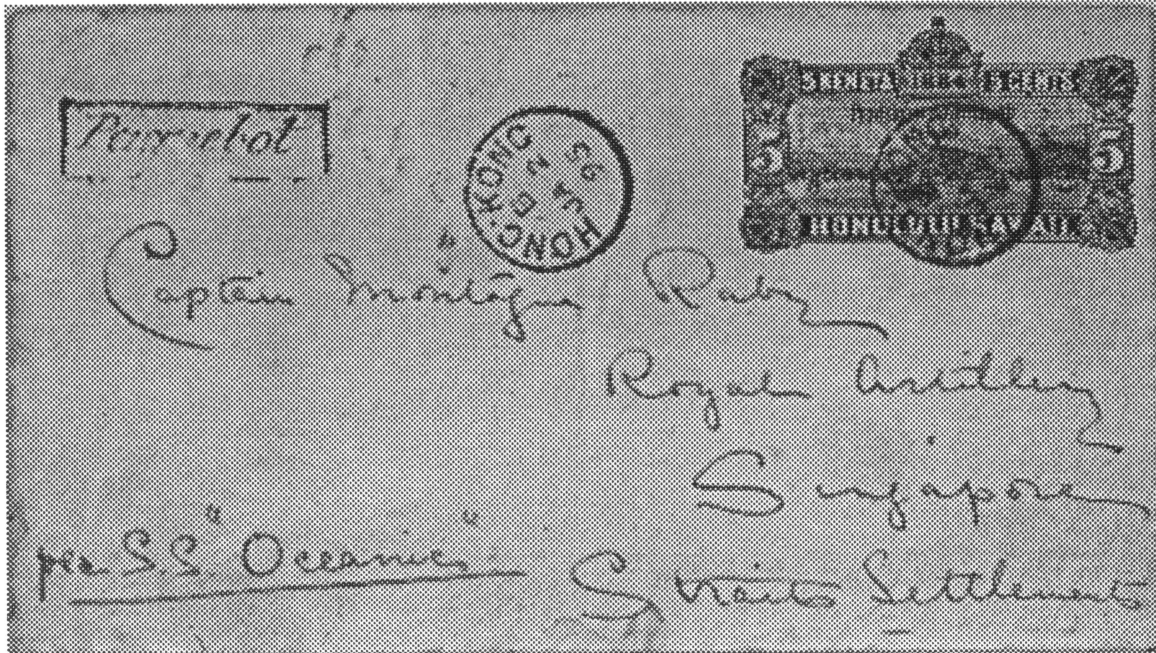 Paquebot
HONG·KONG
JA
95
5 KENETA 5 CENTS
5 5
HONOLULU HAWAII
Captain Montague Raby
Royal Artillery
Singapore
per S.S. "Oceanic"
Straits Settlements